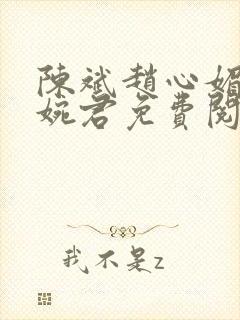 陳斌趙心媚
婉君免費閱
我不是z